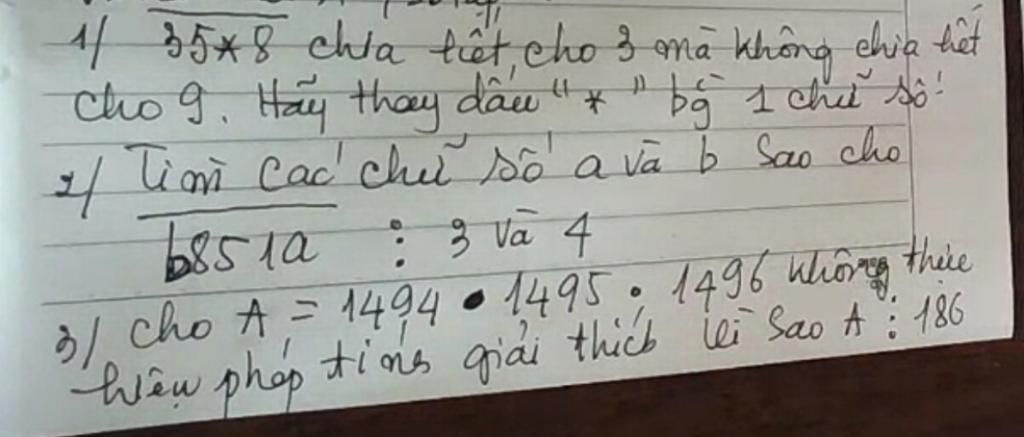 1/ 35*8 chia hết cho 3 mà không chia hết
cho 9. Hãy thay dấu "*" bg 1 chữ số
2/ Tìm các chữ số a và b sao cho
b851a ⋮ 3 và 4
3/ cho A = 1494 . 1495 . 1496 không thực
hiện phép tính giải thích vì sao A ⋮ 186